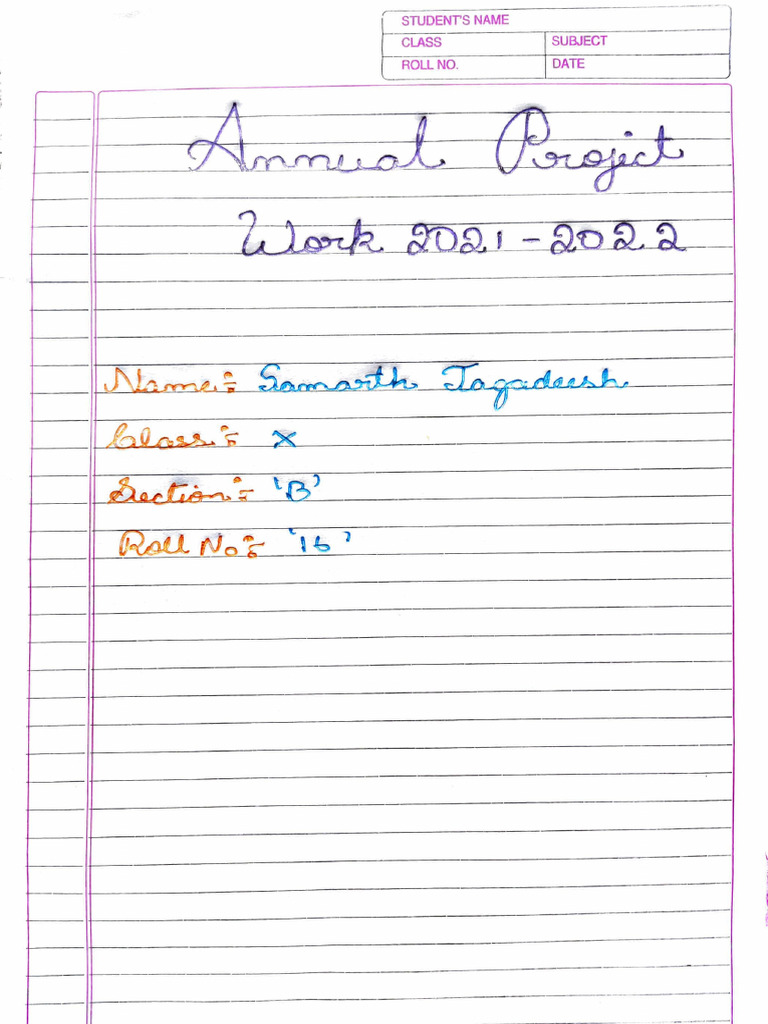 STUDENT'S NAME
CLASS SUBJECT
ROLL NO. DATE
Annual Project
Work 2021-2022
Name:- Samarth Jagadeesh
Class:- X
Section:- 'B'
Roll No:- '16'